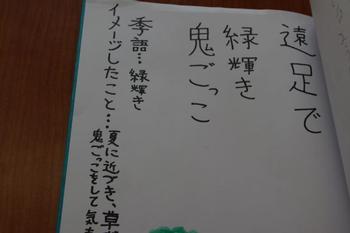 遠足で
緑輝き
鬼ごっこ
季語…緑輝き
イメージしたこと…夏に近づき、草
鬼ごっこをして気